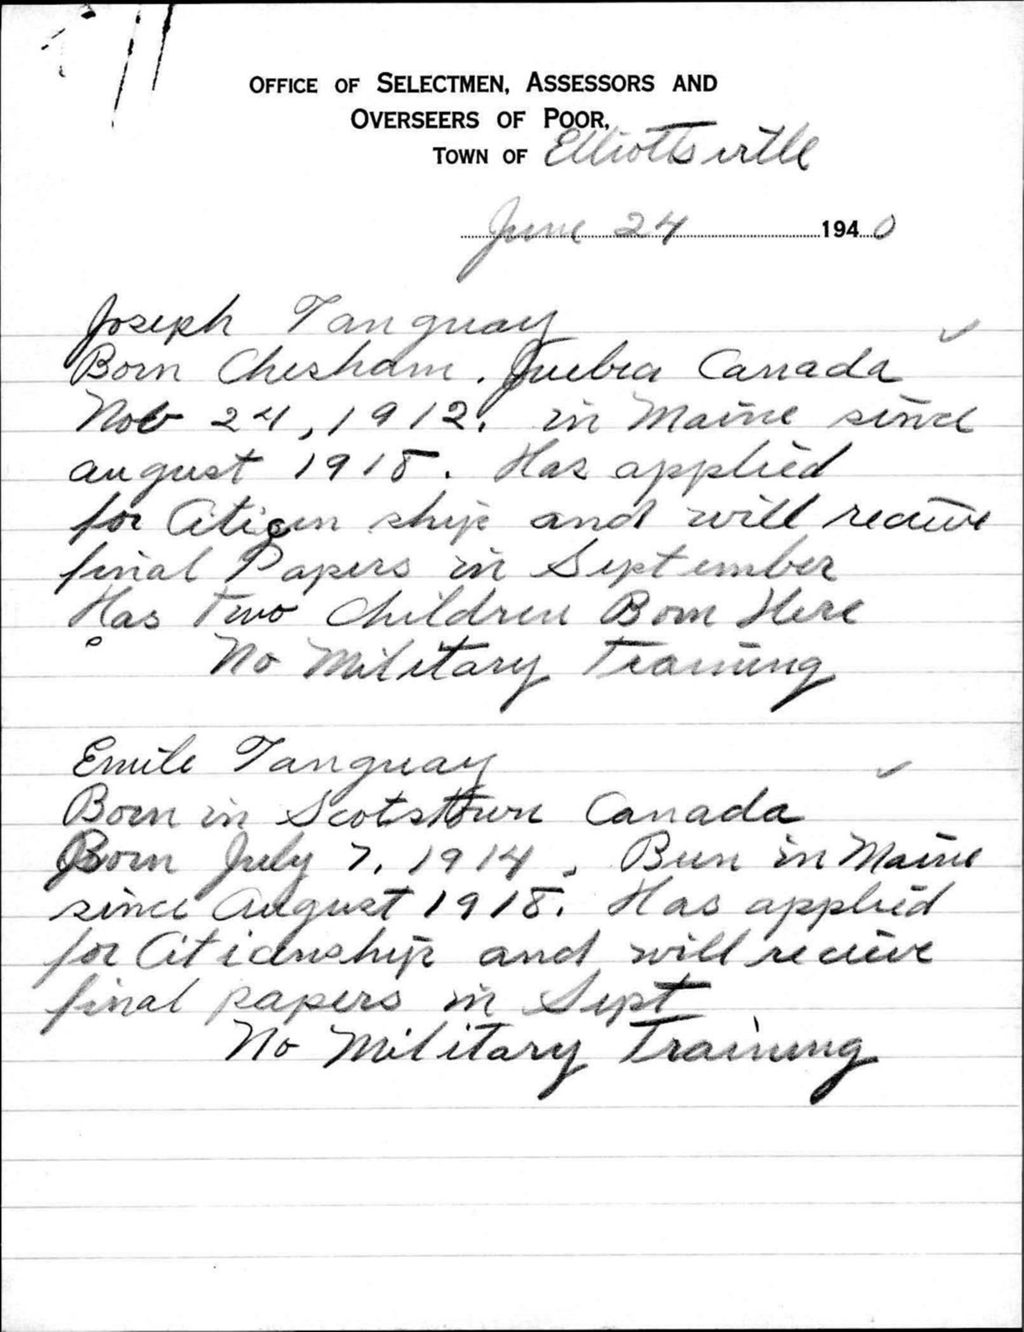 OFFICE OF SELECTMEN, ASSESSORS AND
OVERSEERS OF POOR,
TOWN OF Elliottsville
June 24 1940
Joseph Tanguay
Born Chesham. Quebec Canada
Nov 24, 1912. in Maine since
august 1918. Has applied
for Citizen ship and will recieve
final Papers in September
Has Two Children Born Here
No Military Training
Emile Tanguay
Born in Scotstown Canada
Born July 7, 1914. Been in Maine
since August 1918. Has applied
for Citizenship and will recieve
final papers in Sept
No Military Training